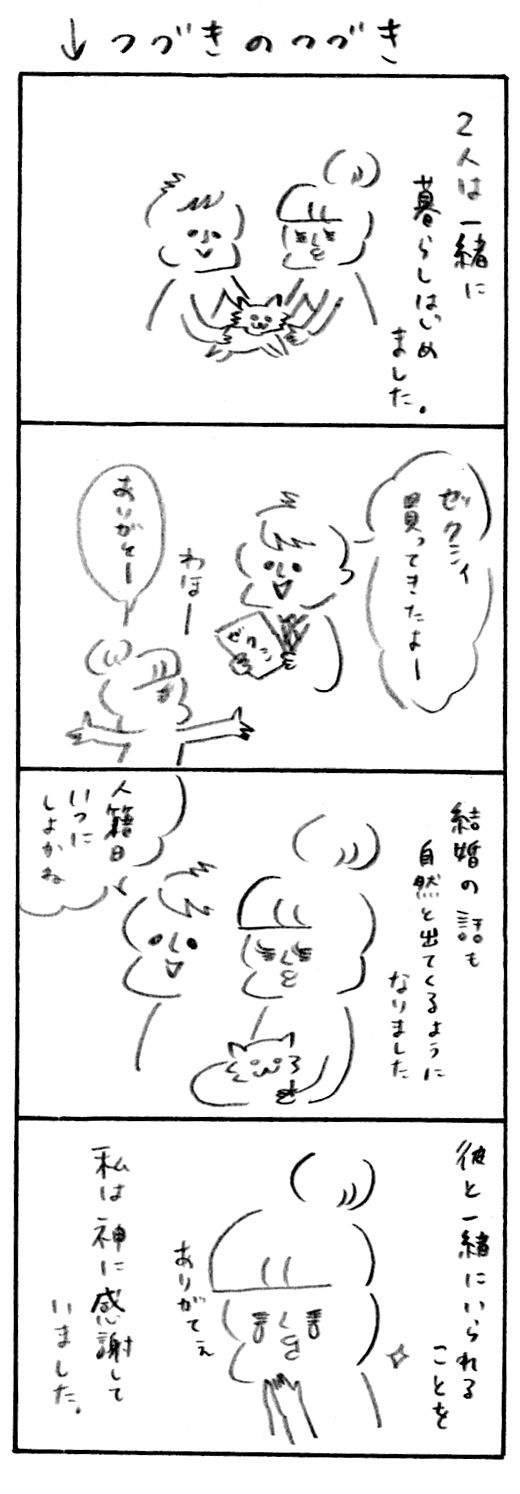 ↓つづきのつづき
2人は一緒に
暮らしはじめ
ました。
ゼックシィ
買ってきたよー
わほー
ありがとー
ゼクシ
結婚の話も
自然と出てくるように
なりました
入籍日
いつに
しよかね
彼と一緒にいられる
ことを
ありがてぇ
私は神に感謝して
いました。